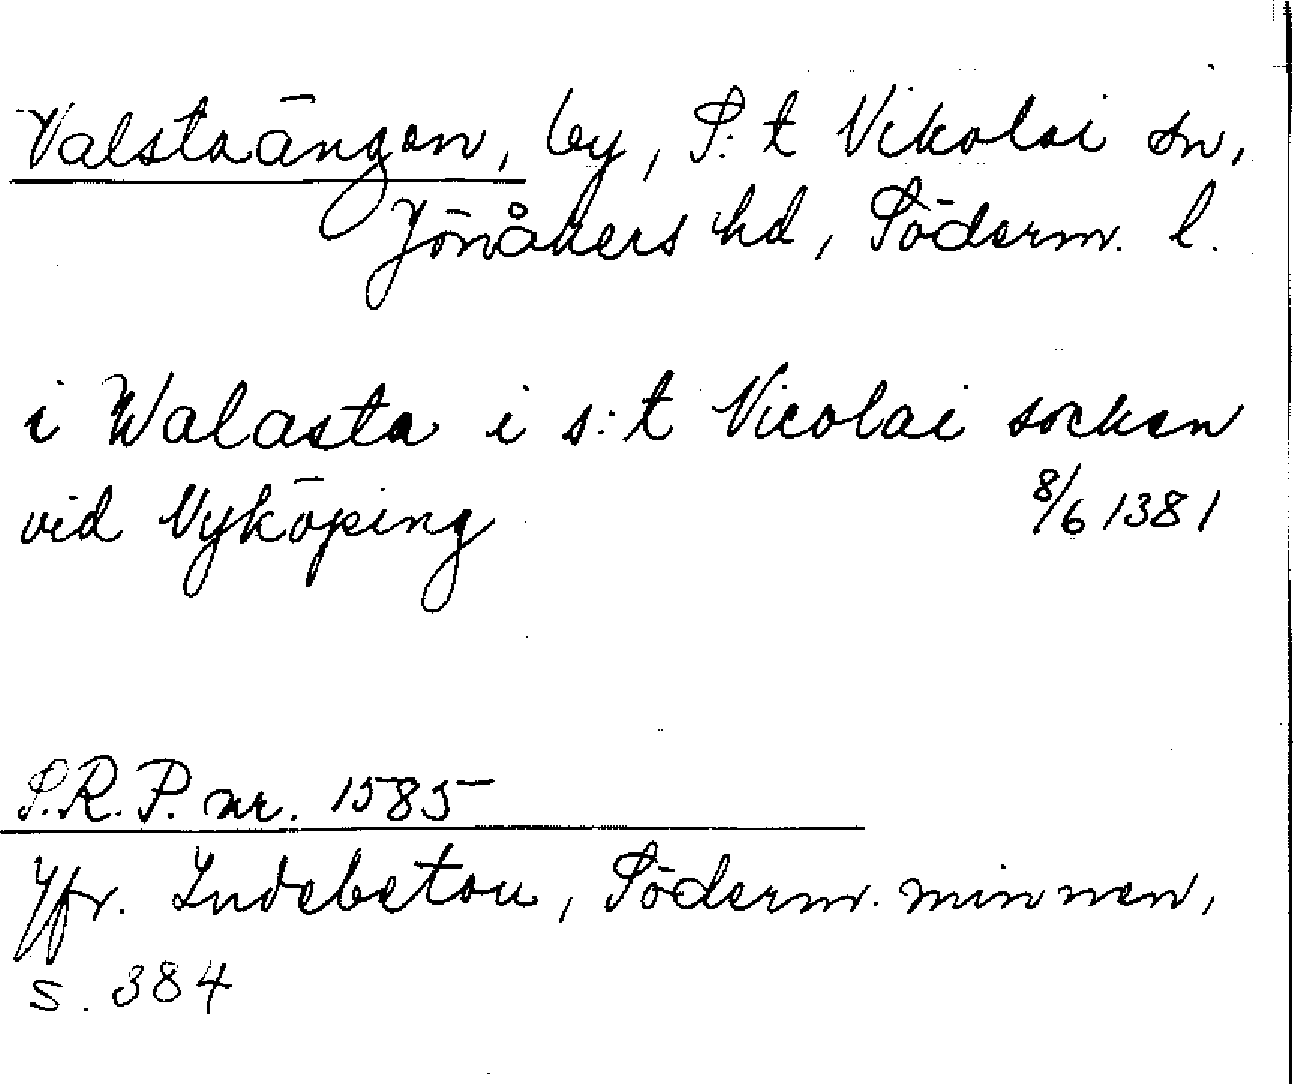 Valstaängen, by, S:t Nikolai sn,
Jönåkers hd, Söderm. l.
i Walasta i s:t Nicolai socken
vid Nyköping 8/6 1381
S.R.P. nr. 1585
Jfr. Indebetou, Söderm. minnen,
s. 384